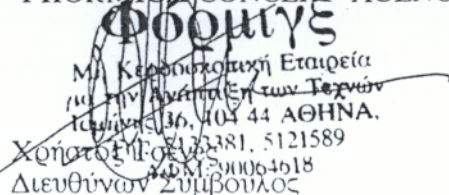 Φόρμιγξ
Μη Κερδοσκοπική Εταιρεία
για την Ανάπτυξη των Τεχνών
36, 104 44 ΑΘΗΝΑ,
5133381, 5121589
Χρήστος
Α.Φ.Μ. 90064618
Διευθύνων Σύμβουλος